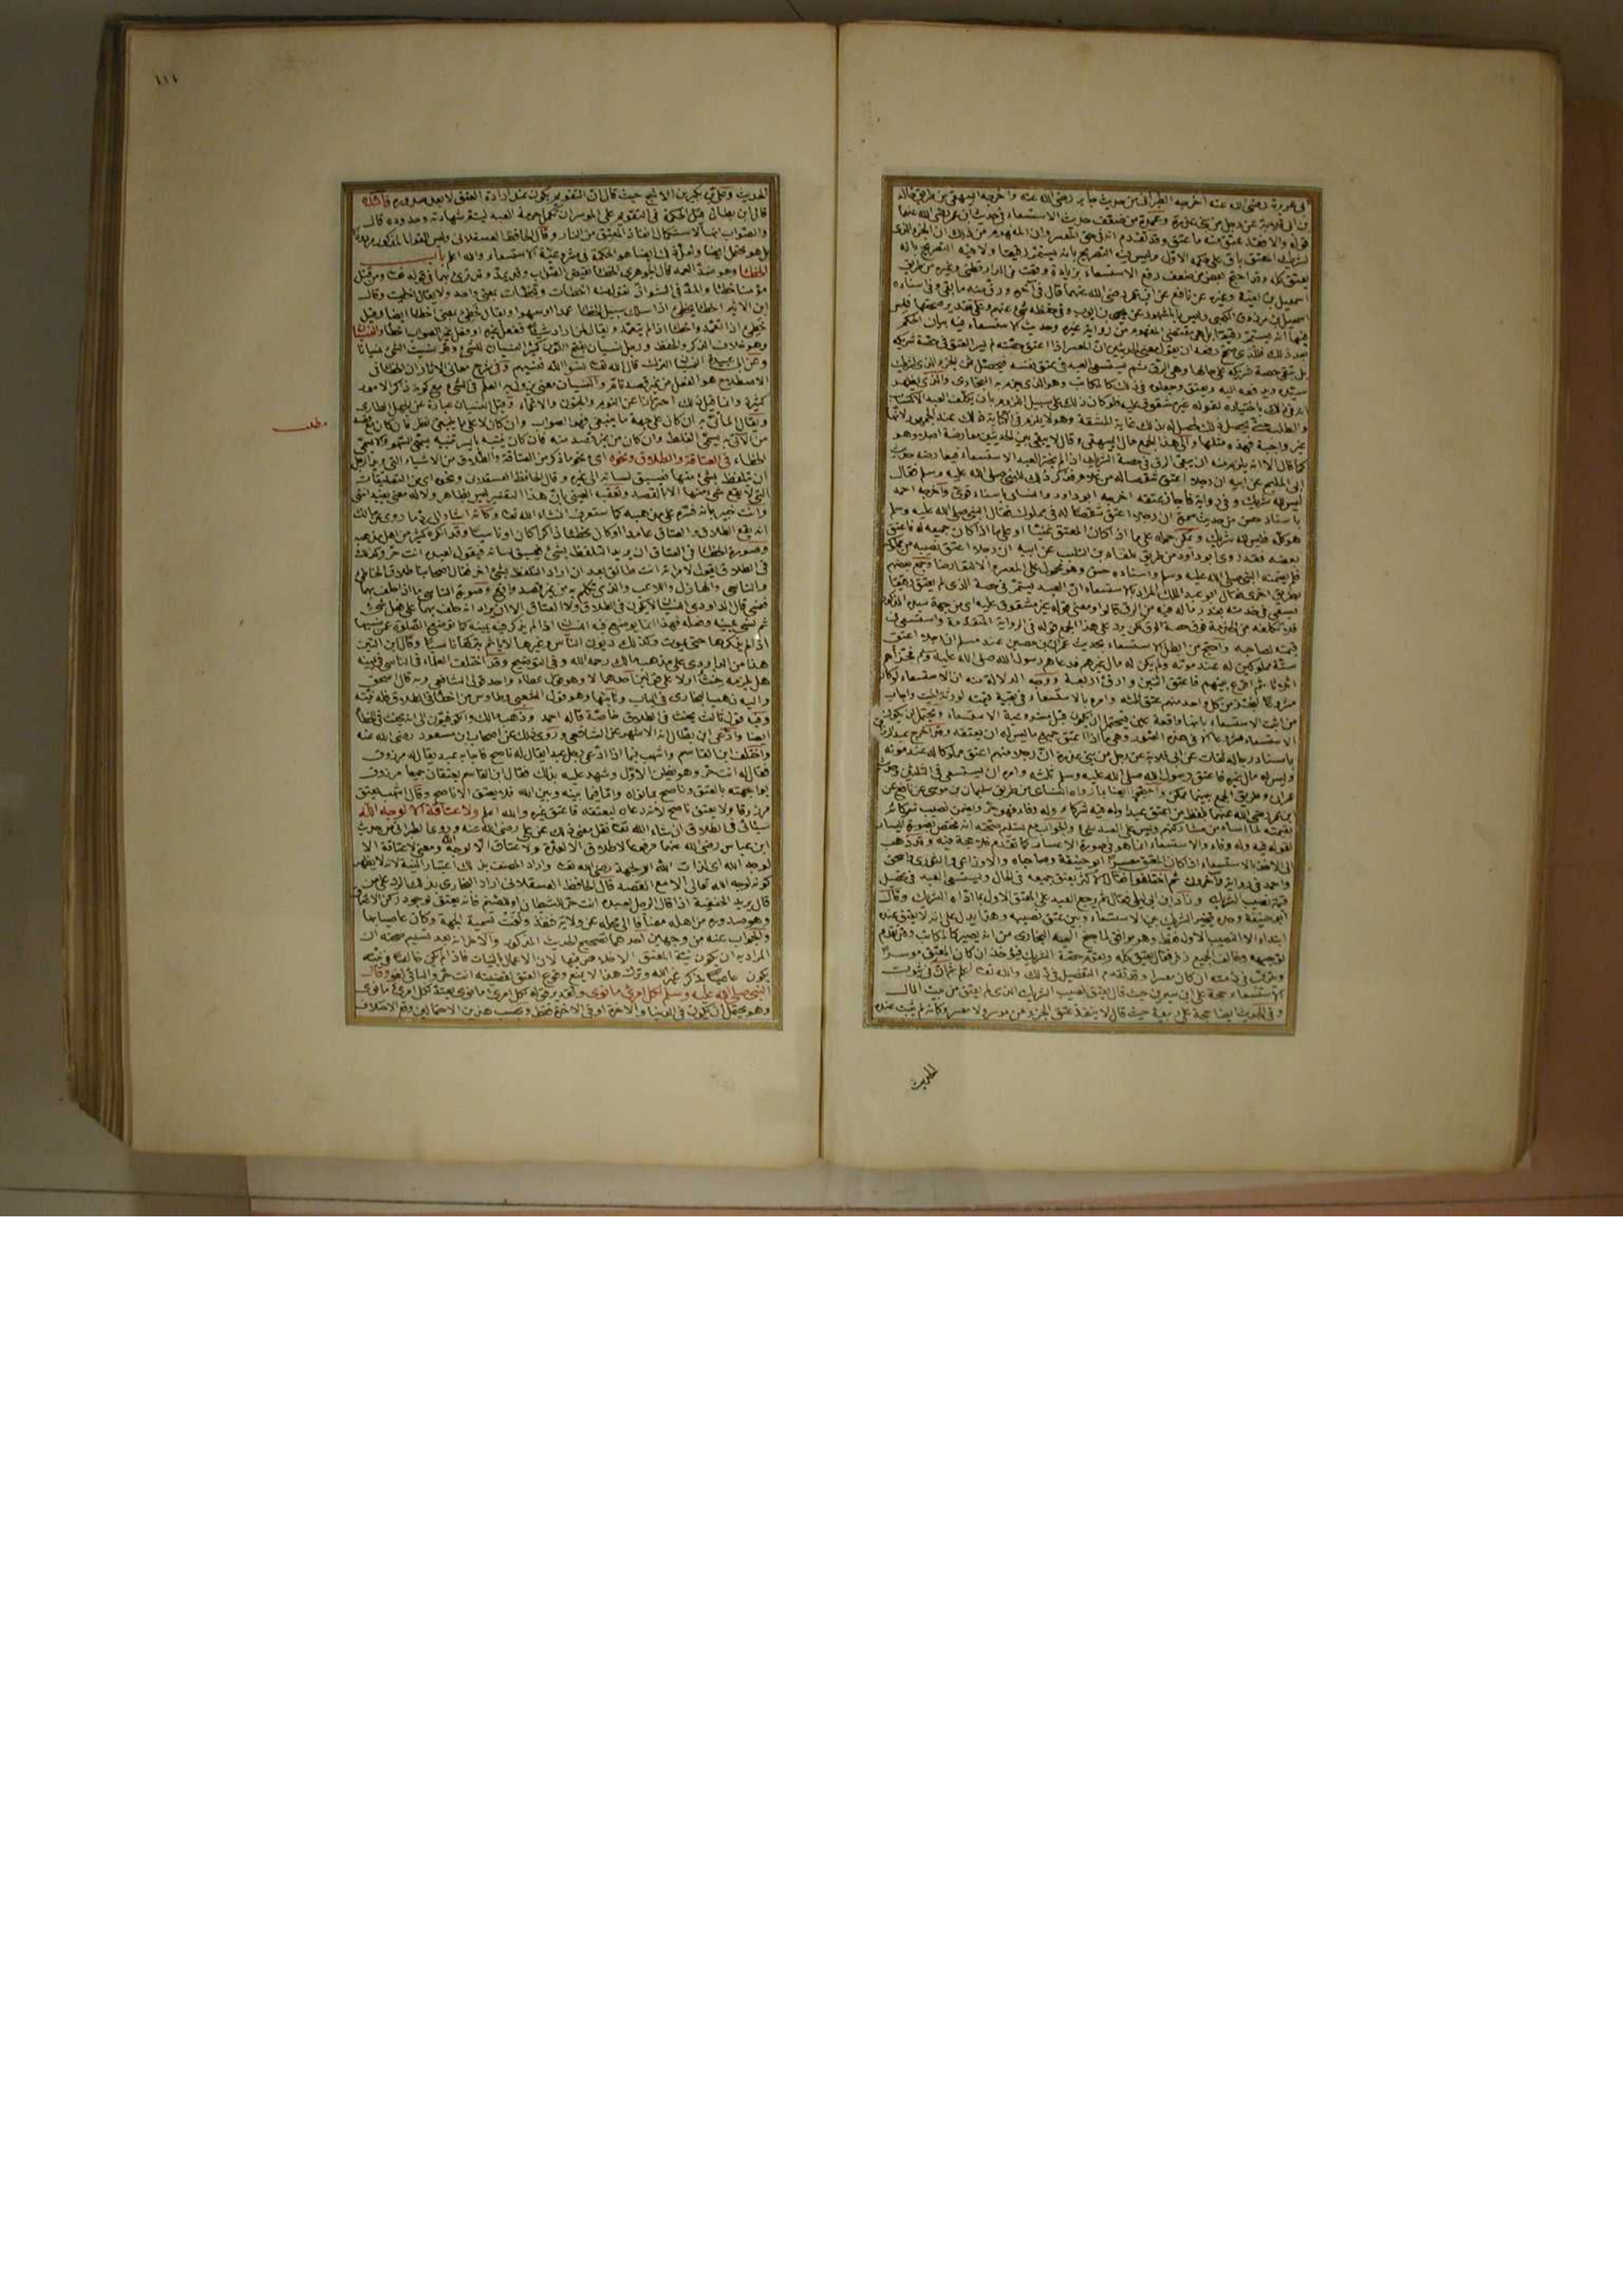 ابى هريرة رضى الله عنه اخرجه الطبرانى من حديث جابر رضى الله عنه واخرجه البيهقى من طريق خالد
بن ابى قلابة عن رجل من بنى عذرة وعمدة من ضعف حديث الاستسعاء فى حديث ابن عمر رضى الله عنهما
قوله والا فقد عتق منه ما عتق وقد تقدم انه فى حق المعسر وان المفهوم من ذلك ان الجزء الذى
لشريك المعتق باق على حكمه الاول وليس فيه التصريح بانه يستمر رقيقا ولا فيه التصريح بانه
يعتق كله وقد احتج بعض من ضعف رفع الاستسعاء بزيادة وقعت فى الدارقطنى وغيره من طريق
اسمعيل بن امية وغيره عن نافع عن ابن عمر رضى الله عنهما قال فى آخره ورق منه ما بقى وفى اسناده
اسمعيل بن مرزوق الكعبى وليس بالمشهور عن يحيى بن ايوب وفى حفظه شئ عنهم وعلى تقدير صحتها فليس
فيها انه يستمر رقيقا بل هى مقتضى المفهوم من رواية غيره وحديث الاستسعاء فيه بيان الحكم
بعد ذلك فللذى صحح رفعه ان يقول معنى الحديثين ان المعسر اذا اعتق حصته لم يسر العتق فى حصة شريكه
بل تبقى حصة شريكه على حالها وهى الرق ثم يستسعى العبد فى عتق بقيته فيحصل ثمن الجزء الذى لشريك
سيده ويدفعه اليه ويعتق وجعلوه فى ذلك كالمكاتب وهو الذى جزم به البخارى والذى يظهر
انه فى ذلك باختياره لقوله غير مشقوق عليه فلو كان ذلك على سبيل اللزوم بان يكلف العبد الاكتساب
والطلب حتى يحصل ذلك لحصل له بذلك غاية المشقة وهو لا يلزم فى الكتابة بذلك عند الجمهور لانها
غير واجبة فهذه مثلها والى هذا الجمع مال البيهقى وقال لا يبقى بين الحديثين معارضة اصلا وهو
كما قال الا انه يلزم منه ان يبقى الرق فى حصة الشريك اذا لم يختر العبد الاستسعاء فيعارضه حديث
ابى المليح عن ابيه ان رجلا اعتق شقصا له من غلام فذكر ذلك للنبى صلى الله عليه وسلم فقال
ليس لله شريك وفى رواية فاجاز عتقه اخرجه ابو داود والنسائى باسناد قوى واخرجه احمد
باسناد حسن من حديث سمرة ان رجلا اعتق شقصا له فى مملوك فقال النبى صلى الله عليه وسلم
هو كله فليس لله شريك ويمكن حمله على ما اذا كان المعتق غنيا او على ما اذا كان جميعه له فاعتق
بعضه فقد روى ابو داود من طريق ملقام بن التلب عن ابيه ان رجلا اعتق نصيبه من مملوك
فلم يضمنه النبى صلى الله عليه وسلم واسناده حسن وهو محمول على المعسر والا لتعارضا وجمع بعضهم
بطريق اخرى فقال ابو عبد الملك المراد بالاستسعاء ان العبد يستمر فى حصة الذى لم يعتق رقيقا
فيسعى فى خدمته بقدر ما له فيه من الرق قالوا ومعنى قوله غير مشقوق عليه اى من جهة سيده المذكور
فلا يكلفه من الخدمة فوق حصة الرق لكن يرد على هذا الجمع قوله فى الرواية المتقدمة واستسعى فى
قيمته لصاحبه واحتج من ابطل الاستسعاء بحديث عمران بن حصين عند مسلم ان رجلا اعتق
ستة مملوكين له عند موته ولم يكن له مال غيرهم فدعاهم رسول الله صلى الله عليه وسلم فجزأهم
اثلاثا ثم اقرع بينهم فاعتق اثنين وارق اربعة ووجه الدلالة منه ان الاستسعاء لو كان
مشروعا لنفذ من كل واحد منهم عتق ثلثه وامره بالاستسعاء فى بقية قيمته لورثة الميت واجاب
من اثبت الاستسعاء بانها واقعة عين فيحتمل ان يكون قبل مشروعية الاستسعاء ويحتمل ان يكون
الاستسعاء مشروعا الا فى هذه الصورة وهى ما اذا اعتق جميع ما ليس له ان يعتقه وقد اخرج عبد الرزاق
باسناد رجاله ثقات عن ابى قلابة عن رجل من بنى عذرة ان رجلا منهم اعتق مملوكا له عند موته
وليس له مال غيره فاعتق رسول الله صلى الله عليه وسلم ثلثه وامره ان يستسعى فى الثلثين
عمران وطريق الجمع بينهما ممكن واحتجوا ايضا بما رواه النسائى من طريق سليمان بن موسى عن نافع عن
ابن عمر رضى الله عنهما بلفظ من اعتق عبدا وله فيه شركاء وله وفاء فهو حر ويضمن نصيب شركائه
بقيمته لما اساء من مشاركتهم وليس على العبد شئ والجواب مع تسليم صحته انه مختص بصورة اليسار
لقوله فيه وله وفاء والاستسعاء انما هو فى صورة الاعسار كما تقدم فلا حجة فيه وقد ذهب
الى الاخذ بالاستسعاء اذا كان المعتق معسرا ابو حنيفة وصاحباه والاوزاعى والثورى واسحق
واحمد فى رواية وآخرون ثم اختلفوا فقال الاكثر يعتق جميعه فى الحال ويستسعى العبد فى تحصيل
قيمة نصيب الشريك وزاد ابن ابى ليلى فقال ثم يرجع العبد على المعتق الاول بما اداه للشريك وقال
ابو حنيفة وحده يتخير الشريك بين الاستسعاء وبين عتق نصيبه وهذا يدل على انه لا يعتق عنده
ابتداء الا النصيب الاول فقط وهو موافق لما جنح اليه البخارى من انه يصير كالمكاتب وقد تقدم
توجيهه وخالف الجميع زفر فقال يعتق كله وتقوم حصة الشريك فيؤخذ ان كان المعتق موسرا
وترتب فى ذمته ان كان معسرا وقد تقدم التفصيل فى ذلك والله تعالى اعلم
الاستسعاء حجة على ابن سيرين حيث قال يعتق نصيب الشريك الذى لم يعتق من بيت المال
وفى الحديث ايضا حجة على ربيعة حيث قال لا ينفذ عتق الجزء من موسر ولا معسر وكانه لم يثبت عنده
الحديث
١١١
الحديث وعلى بكير بن الاشج حيث قال ان التقويم يكون عند ارادة العتق لا بعد صدوره فائدة
قال ابن بطال قيل الحكمة فى التقويم على الموسر ان تكمل حرمة العبد ليتم شهادته وحدوده قال
والصواب انها لاستكمال انقاذ المعتق من النار وقال الحافظ العسقلانى وليس القول المذكور مردودا
بل هو محتمل ايضا ولعل ذلك ايضا هو الحكمة فى مشروعية الاستسعاء والله اعلم باب
الخطاء وهو ضد العمد قال الجوهرى الخطأ نقيض الصواب وقد يمد وقرئ بهما فى قوله تعالى ومن قتل
مؤمنا خطأ والمد فى الشواذ تقول منه اخطأت وتخطأت بمعنى واحد ولا يقال اخطيت وقال
ابن الاثير اخطأ يخطئ اذا سلك سبيل الخطأ عمدا او سهوا ويقال خطئ بمعنى اخطأ ايضا وقيل
خطئ اذا تعمد واخطأ اذا لم يتعمد ويقال لمن اراد شيئا ففعل غيره او فعل غير الصواب اخطأ والنسيان
وهو خلاف الذكر والحفظ ورجل نسيان بفتح النون كثير النسيان للشئ وقد نسيت الشئ نسيانا
وعن ابى عبيدة النسيان الترك قال الله تعالى نسوا الله فنسيهم وفى شرح معانى الآثار ان الخطأ فى
الاصطلاح هو الفعل من غير قصد تام والنسيان معنى يزول به العلم فى الشئ مع كونه ذاكرا لامور
كثيرة وانما قيل ذلك احترازا عن النوم والجنون والاغماء وقيل النسيان عبارة عن الجهل الطارى
ويقال المأتى به ان كان على جهة ما ينبغى فهو الصواب وان كان لا على ما ينبغى نظر فان كان مع قصد
مطلب
من الآتى به يسمى الغلط وان كان من غير قصد منه فان كان ينتبه بايسر تنبيه يسمى السهو والا يسمى
الخطاء فى العتاقة والطلاق ونحوه اى نحو ما ذكر من العتاقة والطلاق من الاشياء التى يريد الرجل
ان يتلفظ بشئ منها فيسبق لسانه الى غيره وقال الحافظ العسقلانى ونحوه اى من التعليقات
التى لا يقع شئ منها الا بالقصد وتعقبه العينى بان هذا التفسير ليس بظاهر ولا له معنى يفيد انتهى
وانت خبير بانه فسره على مذهبه كما ستعرف ان شاء الله تعالى وكانه اشار الى رد ما روى عن مالك
انه يقع الطلاق والعتاق عامدا او كان مخطئا ذاكرا كان او ناسيا وقد انكره كثير من اهل مذهبه
وصورة الخطأ فى العتاق ان يريد التلفظ بشئ فيسبق لسانه فيقول لعبده انت حر وكذلك
فى الطلاق يقول لامرأته انت طالق بعد ان اراد التلفظ بشئ آخر فقال اصحابنا طلاق الخاطئ
والناسى والهازل واللاعب والذى تكلم به من غير قصد واقع وصورة الناسى ما اذا حلف بهما
فنسى قال الداودى النسيان لا يكون فى الطلاق ولا العتاق الا ان يريد انه حلف بهما على فعل شئ
ثم نسى يمينه وفعله فهذا انما يوضع فيه النسيان اذا لم يذكر فيه يمينه كما توضع الصلوة عمن نسيها
اذا لم يذكرها حتى يموت وكذلك ديون الناس وغيرها لا يأثم بتركها ناسيا وقال ابن التين
هذا من الداودى على مذهب مالك رحمه الله وفى التوضيح وقد اختلف العلماء فى الناسى فى يمينه
هل يلزمه حنث اولا على قولين احدهما لا وهو قول عطاء واحد قولى الشافعى وبه قال اسحق
واليه ذهب البخارى فى الباب وثانيهما وهو قول الشعبى وطاوس من اخطأ فى الطلاق فله نيته
وفيه قول ثالث يحنث فى الطلاق خاصة قاله احمد وذهب مالك والكوفيون الى انه يحنث فى الخطأ
ايضا وادعى ابن بطال انه الاشهر عن الشافعى وروى ذلك عن اصحاب ابن مسعود رضى الله عنه
واختلف ابن القاسم واشهب فيما اذا دعى رجل عبدا يقال له ناصح فاجابه عبد يقال له مرزوق
فقال له انت حر وهو يظن الاول وشهد عليه بذلك فقال ابن القاسم يعتقان جميعا مرزوق
بمواجهته بالعتق وناصح بما نواه واما فيما بينه وبين الله فلا يعتق الا ناصح وقال اشهب يعتق
مرزوق ولا يعتق ناصح لانه دعاه ليعتقه فاعتق غيره والله اعلم ولا عتاقة الا لوجه الله
سيأتى فى الطلاق ان شاء الله تعالى نقل معنى ذلك عن على رضى الله عنه وروى الطبرانى من حديث
ابن عباس رضى الله عنهما مرفوعا لا طلاق الا لعدة ولا عتاق الا لوجه الله ومعنى لا عتاقة الا
لوجه الله اى لذات الله او لجهة رضى الله تعالى واراد المصنف بذلك اعتبار النية لانه لا يظهر
كونه لوجه الله تعالى الا مع القصد قال الحافظ العسقلانى اراد البخارى بذلك الرد على من
قال يريد الحنفية اذا قال الرجل لعبده انت حر للشيطان او للصنم فانه يعتق لوجود ركن الاعتاق
وهو صدوره من اهله مضافا الى محله عن ولاية فنفذ ولغت تسمية الجهة وكان عاصيا بها
والجواب عنه من وجهين احدهما تصحيح الحديث المذكور والآخر انه بعد تسليم صحته ان
المراد به ان يكون نية المعتق الاخلاص فيها لان الاعمال بالنيات فاذا لم يكن خالصا فى نيته
يكون عاصيا بذكر غير الله وترك هذا لا يمنع وقوع العتق لقضية انت حر والباقى لغو وقال
النبى صلى الله عليه وسلم لكل امرئ ما نوى ولفظ قوله لكل امرئ ما نوى يعنى لكل امرئ ما نوى
وهو يحتمل ان يكون فى الدنيا والآخرة او فى الآخرة فقط وبحسب هذين الاحتمالين وقع الاختلاف